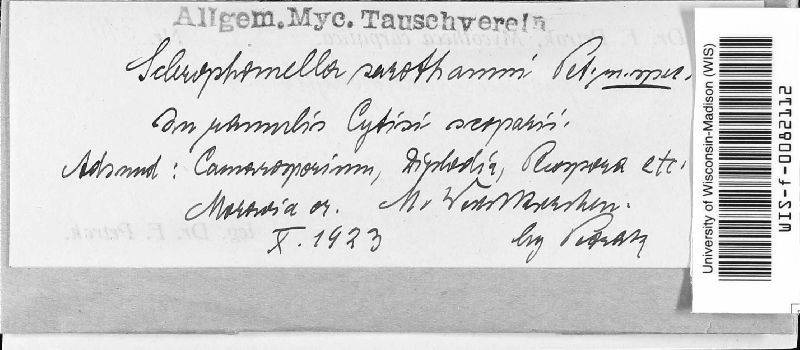 Allgem. Myc. Tauschverein
Sclerophomella sarothamni Pet. n. spec.
In ramulis Cytisi scoparii.
Adsund: Camarosporium, Diplodia, Pleospora etc.
Moravia or. M. Weisskirchen.
X. 1923 leg Petrak
leg. Dr. F. Petrak.
University of Wisconsin-Madison (WIS)
WIS-f-0082112